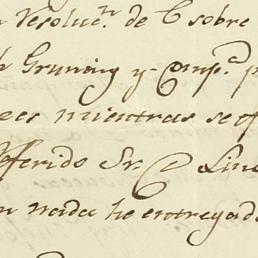 Resoluc.n de C sobre
Gruning y Comp.a p
ees mientras se of
fferido Sr. D Line
n nada he entregad